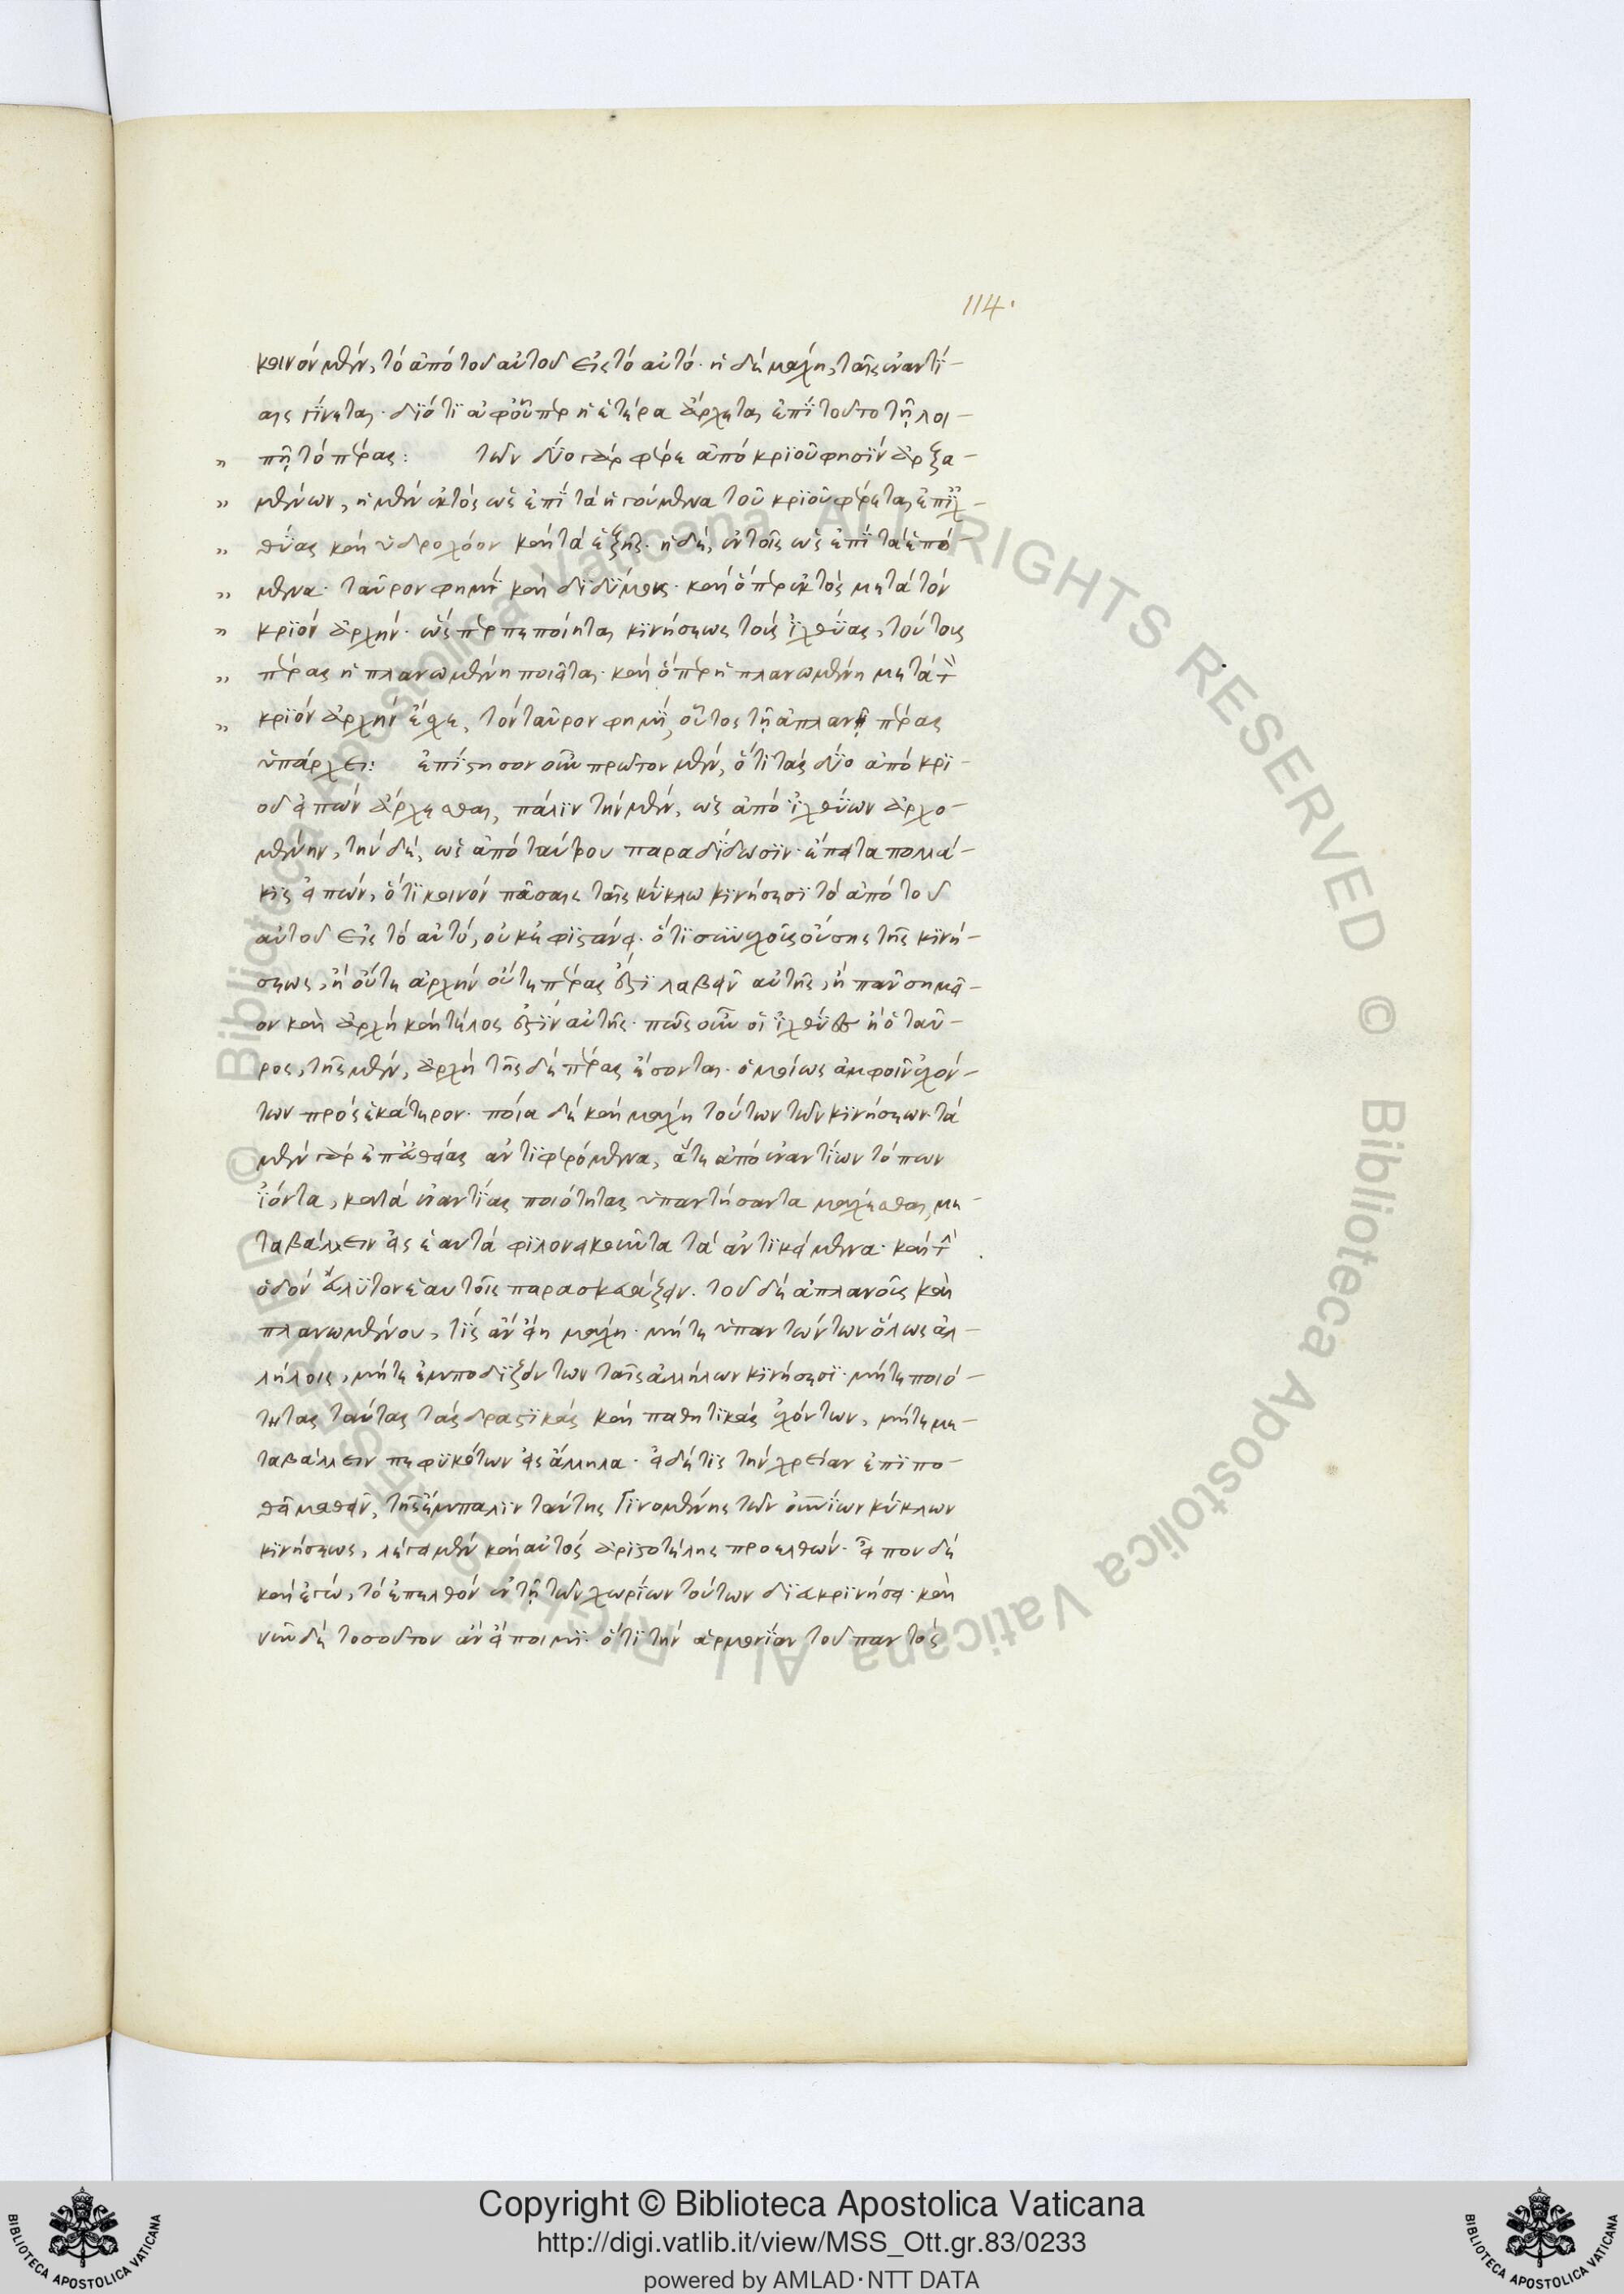 114.
κοινὸν μὲν, τὸ ἀπὸ τοῦ αὐτοῦ εἰς τὸ αὐτό· ἡ δὲ μάχη, ταῖς ἐναντί-
αις γίνεται· διότι ἀφ' οὗπερ ἡ ἑτέρα ἄρχεται ἐπὶ τοῦτο τῇ λοι-
" πῇ τὸ πέρας: τῶν δύο γὰρ φέρε ἀπὸ κριοῦ φησὶν ἀρξα-
" μένων, ἡ μὲν ἐκτὸς ὡς ἐπὶ τὰ ἡγούμενα τοῦ κριοῦ φέρεται ἐπὶ ἰχ-
" θύας καὶ ὑδροχόον καὶ τὰ ἑξῆς· ἡ δὲ, ἐντὸς ὡς ἐπὶ τὰ ἑπό-
" μενα· ταῦρον φημὶ καὶ διδύμους· καὶ ὅπερ ἐκτὸς μετὰ τὸν
" κριὸν ἀρχήν· ὥσπερ πεποίηται κινήσεως τοὺς ἰχθύας, τούτοις
" πέρας ἡ πλανωμένη ποιεῖται· καὶ ὅπερ ἡ πλανωμένη μετὰ τὸν
" κριὸν ἀρχὴν ἔχει, τὸν ταῦρον φημὶ, οὗτος τῇ ἀπλανῇ πέρας
ὑπάρχει: ἐπίστησον οὖν πρῶτον μὲν, ὅτι τὰς δύο ἀπὸ κρι-
οῦ εἰπὼν ἄρχεσθαι, πάλιν τὴν μὲν, ὡς ἀπὸ ἰχθύων ἀρχο-
μένην, τὴν δὲ, ὡς ἀπὸ ταύρου παραδίδωσιν· ἔπειτα πολλά-
κις εἰπών, ὅτι κοινὸν πάσαις ταῖς κύκλω κινήσεσι τὸ ἀπὸ τοῦ
αὐτοῦ εἰς τὸ αὐτό, οὐκ ἐφιστάνει· ὅτι συνεχοῦς οὔσης τῆς κινή-
σεως, ἢ οὔτε ἀρχὴν οὔτε πέρας ἔστι λαβεῖν αὐτῆς, ἢ πᾶν σημεῖ-
ον καὶ ἀρχὴ καὶ τέλος ἐστὶν αὐτῆς· πῶς οὖν οἱ ἰχθύες ἢ ὁ ταῦ-
ρος, τῆς μὲν, ἀρχὴ τῆς δὲ πέρας ἔσονται· ὁμοίως ἀμφοῖν ἐχόν-
των πρὸς ἑκάτερον· ποία δὲ καὶ μάχη τούτων τῶν κινήσεων· τὰ
μὲν γὰρ ἐπ' εὐθείας ἀντιφερόμενα, ἅτε ἀπὸ ἐναντίων τόπων
ἰόντα, κατὰ ἐναντίας ποιότητας ὑπαντήσαντα μάχεσθαι, με-
ταβάλλειν εἰς ἑαυτὰ φιλονεικοῦντα τὰ ἀντικείμενα· καὶ τὴν
ὁδὸν ἄλυτον ἑαυτοῖς παρασκευάζειν. τοῦ δὲ ἀπλανοῦς καὶ
πλανωμένου, τίς ἂν εἴη μάχη· μήτε ὑπαντώντων ὅλως ἀλ-
λήλοις, μήτε ἐμποδιζόντων ταῖς ἀλλήλων κινήσεσι· μήτε ποιό-
τητας ταύτας τὰς δραστικὰς καὶ παθητικὰς ἐχόντων, μήτε με-
ταβάλλειν πεφυκότων εἰς ἄλληλα· εἰ δέ τις τὴν χρείαν ἐπιπο-
θεῖ μαθεῖν, τῆς ἔμπαλιν ταύτης γινομένης τῶν οὐρανίων κύκλων
κινήσεως, λέγει μὲν καὶ αὐτὸς ἀριστοτέλης προελθών· εἴπου δὲ
καὶ ἐγὼ, τὸ ἐπελθὸν ἐν τῇ τῶν χωρίων τούτων διευκρινήσει· καὶ
νῦν δὲ τοσοῦτον ἂν εἴποιμι· ὅτι τὴν ἁρμονίαν τοῦ παντὸς
Copyright © Biblioteca Apostolica Vaticana
http://digi.vatlib.it/view/MSS_Ott.gr.83/0233
powered by AMLAD·NTT DATA